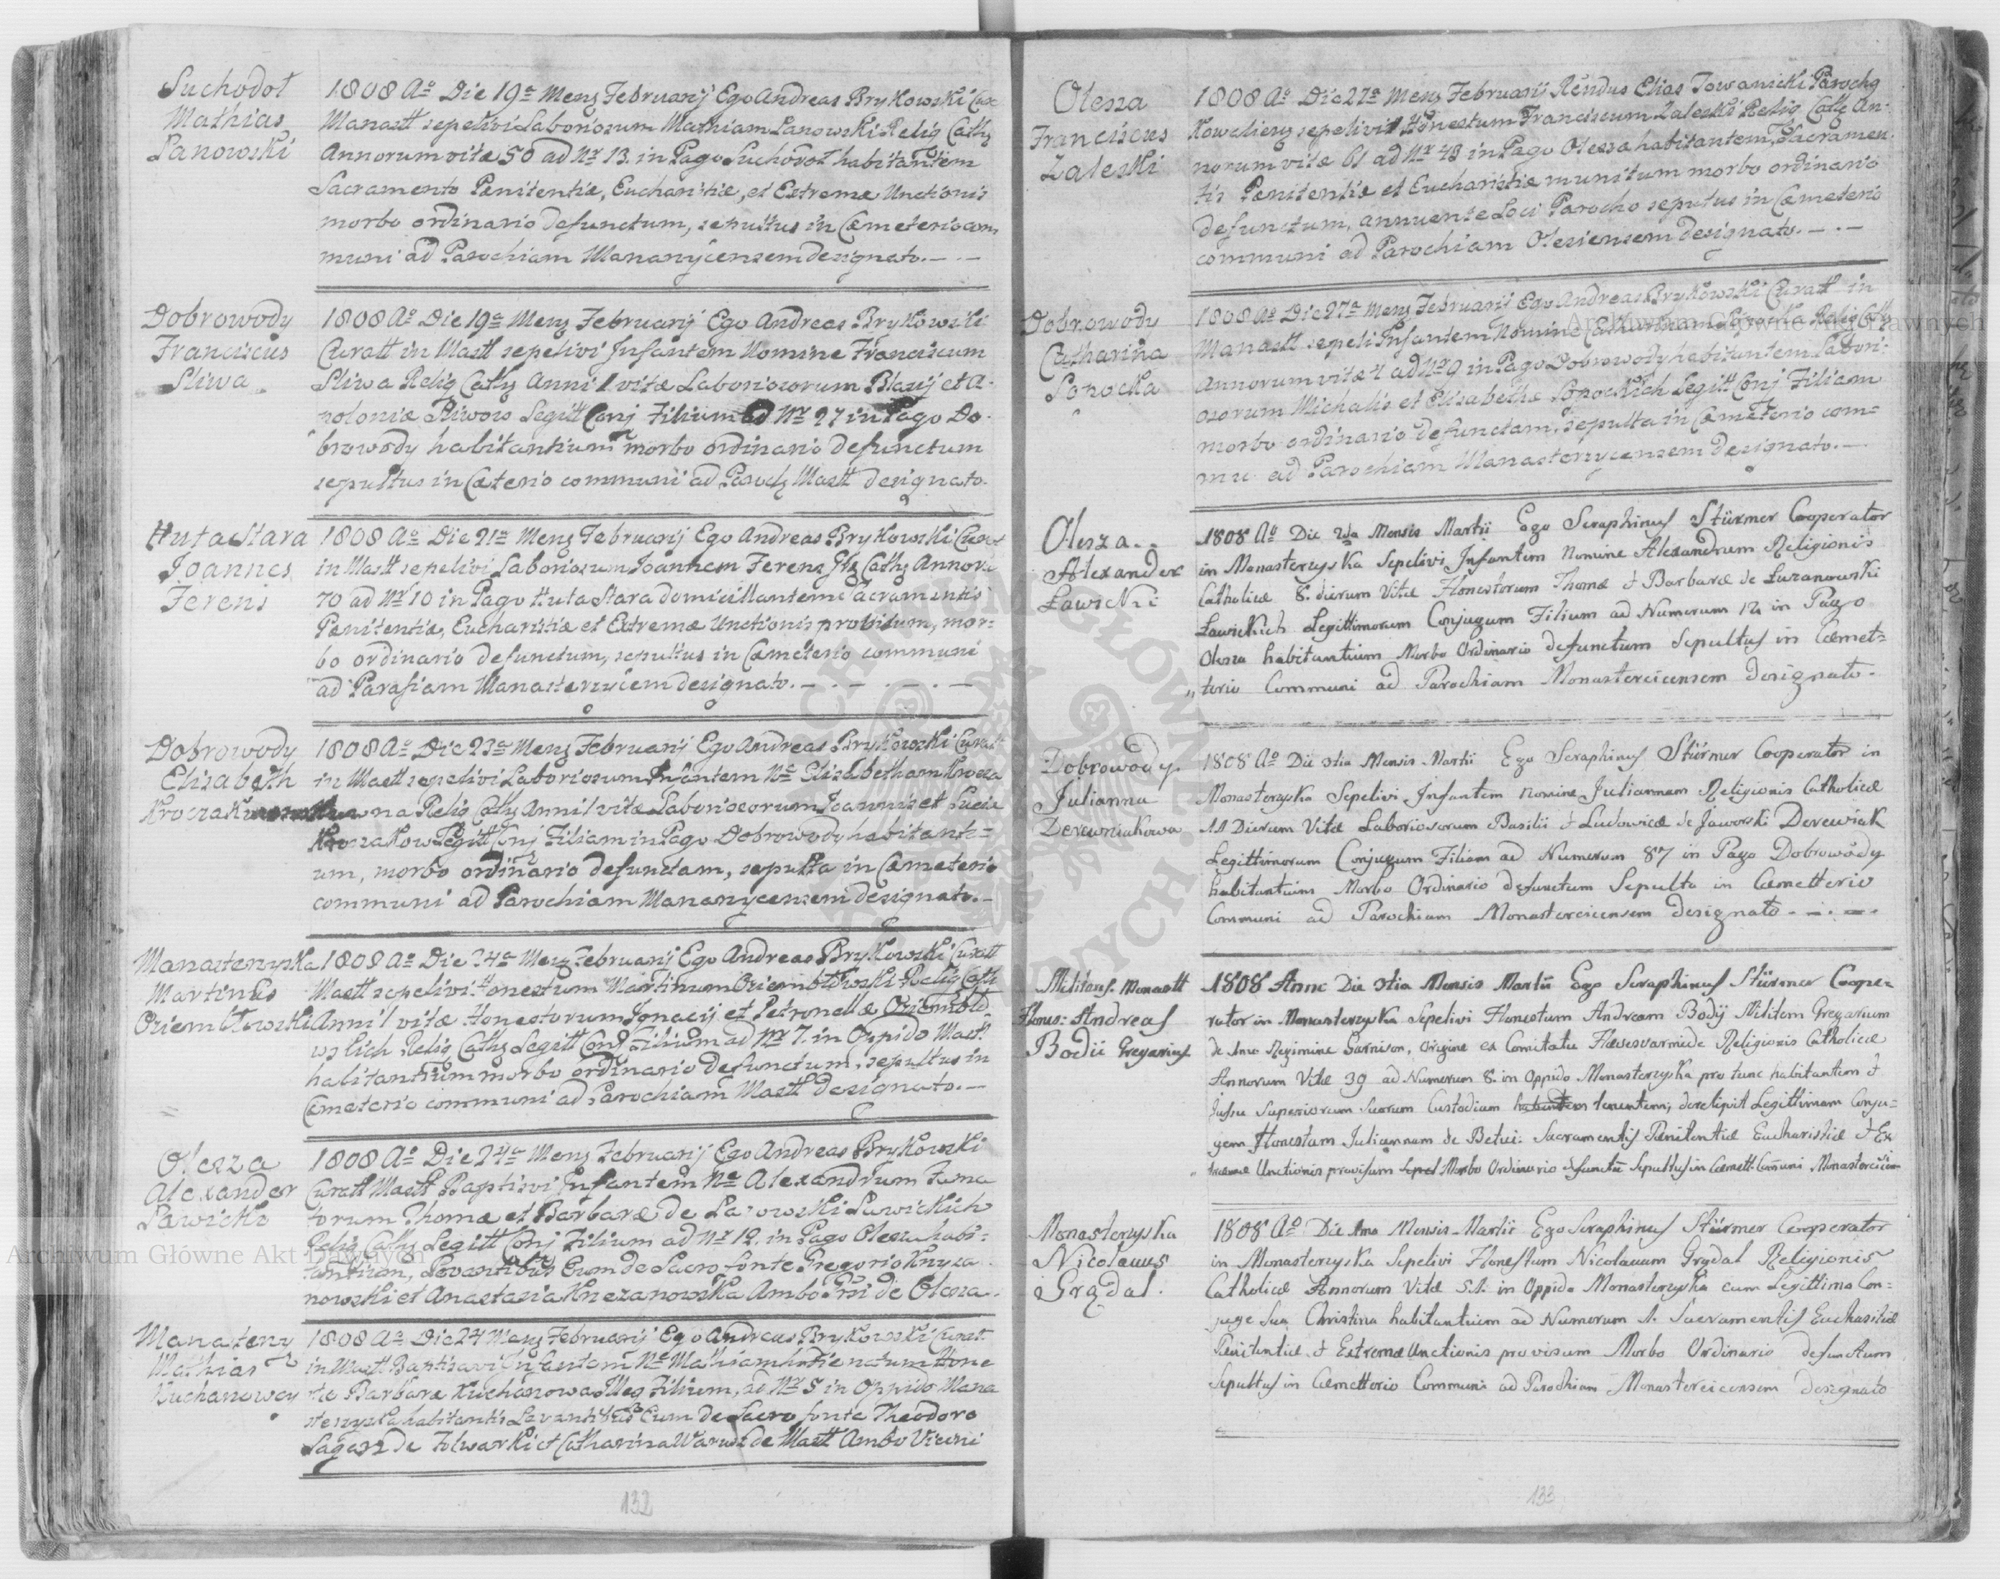 Suchodoł
Mathias
Panowski
1808 Aо Die 19a Mens Februarij Ego Andreas Brykowski Cur
Manastt sepelivi Laboriosum Mathiam Panowski Relig Cath
Annorum vitæ 50 ad Nr 13. in Pago Suchodoł habitantem
Sacramento Pænitentiæ, Eucharistiæ, et Extremæ Unctionis
morbo ordinario defunctum, sepultus in Cæmeterio com
muni ad Parochiam Mananycensem designato.
Dobrowody
Franciscus
Sliwa
1808 Ao Die 19a Mens Februarij Ego Andreas Brykowski
Curatt in Mastt sepelivi Infantem Nomine Franciscum
Sliwa Relig Cath Anni 1 vitæ Laboriosorum Blasij et A-
poloniæ Sliwow Legitt Conj Filium ad Nr 27 in Pago Do-
browody habitantium morbo ordinario defunctum
sepultus in Cæterio communi ad Paroch Mastt designato.
Huta Stara
Joannes
Ferens
1808 Ao Die 21a Mens Februarij Ego Andreas Brykowski Curat
in Mastt sepelivi Laboriosum Joannem Ferens Cath Annoru
70 ad Nr 10 in Pago Huta Stara domicillantem Sacramentis
Pænitentiæ, Eucharistiæ et Extremæ Unctionis provisum, mor-
bo ordinario defunctum, sepultus in Cæmeterio communi
ad Parafiam Manasterzyciem designato.
Dobrowody
Elisabeth
Kroczak
1808 Ao Die 23a Mens Februarij Ego Andreas Brykowski Curat
in Mastt sepelivi Laboriosum Infantem Ne Elisabetham Krocza
wna Relig Cath Anni 1 vitæ Laboriosorum Joannis et Luciæ
Kroczakow Legitt Conj Filiam in Pago Dobrowody habitanti-
um, morbo ordinario defunctam, sepulta in Cæmeterio
communi ad Parochiam Mananycensem designato.
Manasterzyska
Martinus
Oziembłowski
1808 Ao Die 24a Mens Februarij Ego Andreas Brykowski Curatt
Mastt sepelivi Honestum Martinum Oziembłowski Relig Cath
Anni 1 vitæ Honestorum Ignacij et Petronellæ Oziembło
wslich Relig Cath Legitt Conj Filium ad Nr 7. in Oppido Mastt
habitantium morbo ordinario defunctum, sepultus in
Cæmeterio communi ad Parochiam Mastt designato.
Olesza
Alexander
Lawicki
1808 Ao Die 24a Mens Februarij Ego Andreas Brykowski
Curatt Mastt Baptisvi Infantem Ne Alexandrum Fama
torum Thomæ et Barbaræ de Lawickich
Relig Cath Legitt Conj Filium ad Nr 12. in Pago Olesza habi-
tantium, Levantibus Eum de Sacro fonte Gregorio Knyza
nowski et Anastasia Kniezanowska Ambo de Olesza.
Manastery
Mathias
Kuchanowey
1808 Ao Die 24 Mens Februarij Ego Andreas Brykowski Curat
in Mastt Baptisavi Infantem Ne Mathiam hodie natum Hone
stæ Barbaræ Kuchanowa Filium, ad Nr 5 in Oppido Mana
sterzyska habitantis Levantibus Eum de Sacro fonte Theodoro
de Folwarki et Catharina de Mastt Ambo Vicini
132
Olesza
Franciscus
Zaleski
1808 Ao Die 27a Mens Februarij Rendus Elias Towarnicki Parochg
sepelivit Honestum Franciscum Zaleski Relig Cath An-
norum vitæ 61 ad Nr 43 in Pago Olesza habitantem, Sacramen
tis Pænitentiæ et Eucharistiæ munitum morbo ordinario
defunctum, annuente Loci Parocho sepultus in Cæmeterio
communi ad Parochiam Olesiensem designato.
Dobrowody
Catharina
Sopocka
1808 Ao Die 27a Mens Februarij Ego Andreas Brykowski Curatt in
Manastt sepeli Infantem Nomine Catharinam Relig Cath
Annorum vitæ 4 ad Nr 9 in Pago Dobrowody habitantem Labori-
osorum Michalis et Elisabethæ Legitt Conj Filiam
morbo ordinario defunctam, sepulta in Cæmeterio com-
mu ad Parochiam Manasterzycensem designato.
Olesza
Alexander
Lawicki
1808 Ao Die 2da Mensis Martii Ego Seraphinus Stürmer Cooperator
in Monasterzyska Sepelivi Infantem Nomine Alexandrum Religionis
Catholicæ 8. dierum Vitæ Honestorum Thomæ et Barbaræ de Luzanowski
Lawickich Legittimorum Conjugum Filium ad Numerum 12. in Pago
Olesza habitantium Morbo Ordinario defunctum Sepultus in Cæmet-
terio Communi ad Parochiam Monastercicensem Designato.
Dobrowody
Julianna
Derewniakowa
1808 Ao Die 3tia Mensis Martii Ego Seraphinus Stürmer Cooperator in
Monasterzyska Sepelivi Infantem Nomine Juliannam Religionis Catholicæ
11 Dierum Vitæ Laboriosorum Basilii et Ludowicæ de Jaworski Derewiak
Legittimorum Conjugum Filiam ad Numerum 87 in Pago Dobrowody
habitantium Morbo Ordinario defunctum Sepulta in Cæmetterio
Communi ad Parochiam Monastercicensem designato.
Militans. Monastt
Hones: Andreas
Bodii Gregarius
1808 Anno Die 3tia Mensis Martii Ego Seraphinus Stürmer Coope-
rator in Monasterzyska Sepelivi Honestum Andream Bodÿ Militem Gregarium
de Imo Regimine Garnison, Origine ex Comitatu Religionis Catholicæ
Annorum Vitæ 39 ad Numerum 8. in Oppido Monasterzyska pro tunc habitantem et
Jussu Superiorum Suorum Custodiam habentem tenentem; derelipit Legittimam Conju-
gem Honestam Juliannam de Betui. Sacramentis Pænitentiæ Eucharistiæ et Ex
tremæ Unctionis provisum Morbo Ordinario defuncti Sepultus in Cæmett Com̄uni Monastercicien
Monasterzyska
Nicolaus
Grądal.
1808 Ao Die 4ma Mensis Martii Ego Seraphinus Stürmer Cooperator
in Monasterzyska Sepelivi Honestum Nicolaum Grądal Religionis
Catholicæ Annorum Vitæ 51. in Oppido Monasterzyska cum Legittima Con-
juge Sua Christina habitantium ad Numerum 1. Sacramentis Eucharistiæ
Pænitentiæ et Extremæ Unctionis provisum Morbo Ordinario defunctum
Sepultus in Cæmetterio Communi ad Parochiam Monastercicensem designato
133
Archiwum Główne Akt Dawnych
Archiwum Główne Akt Dawnych